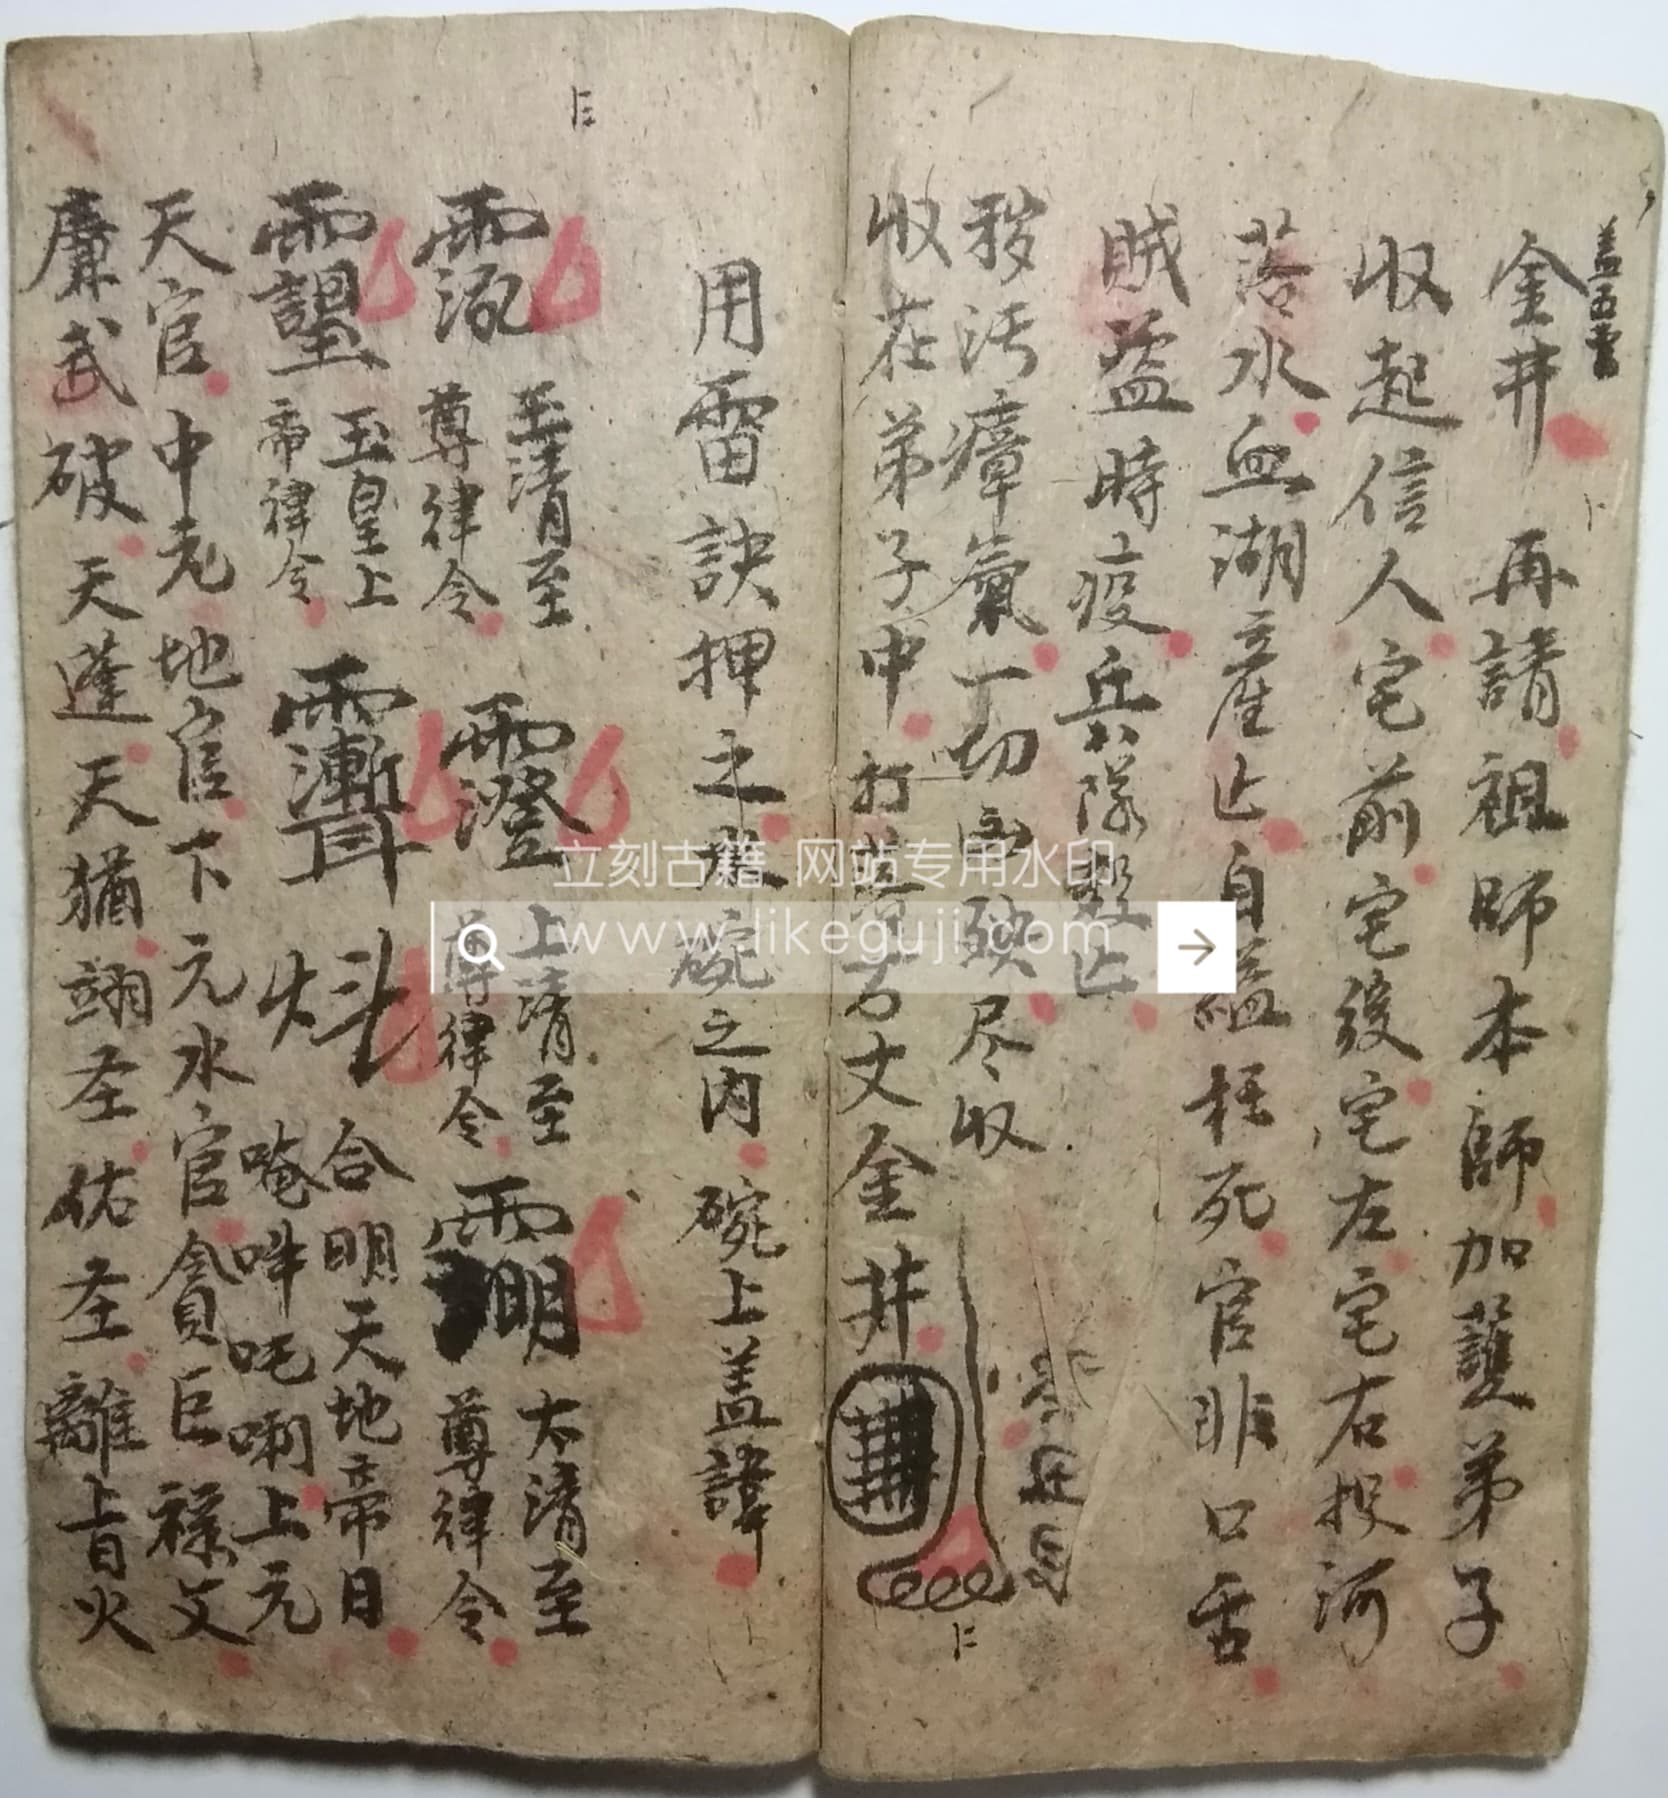 金井 再請祖師本師加護弟子
收起信人宅前宅後宅左宅右投河
落水血湖產亡自縊枉死官非口舌
賊盜時疫兵隊殺亡
穢污瘴氣一切凶殃尽收
收在弟子中打落万丈金井
用雷訣押之水碗之内 碗上盖諱
玉清至
尊律令
上清至
尊律令
太清至
尊律令
玉皇上
帝律令
合明天地帝日
唵吽吒唎上元
天官中元地官下元水官貪巨祿文
廉武破天蓬天猶翊圣佑圣離上首火
立刻古籍 网站专用水印
www.likeguji.com